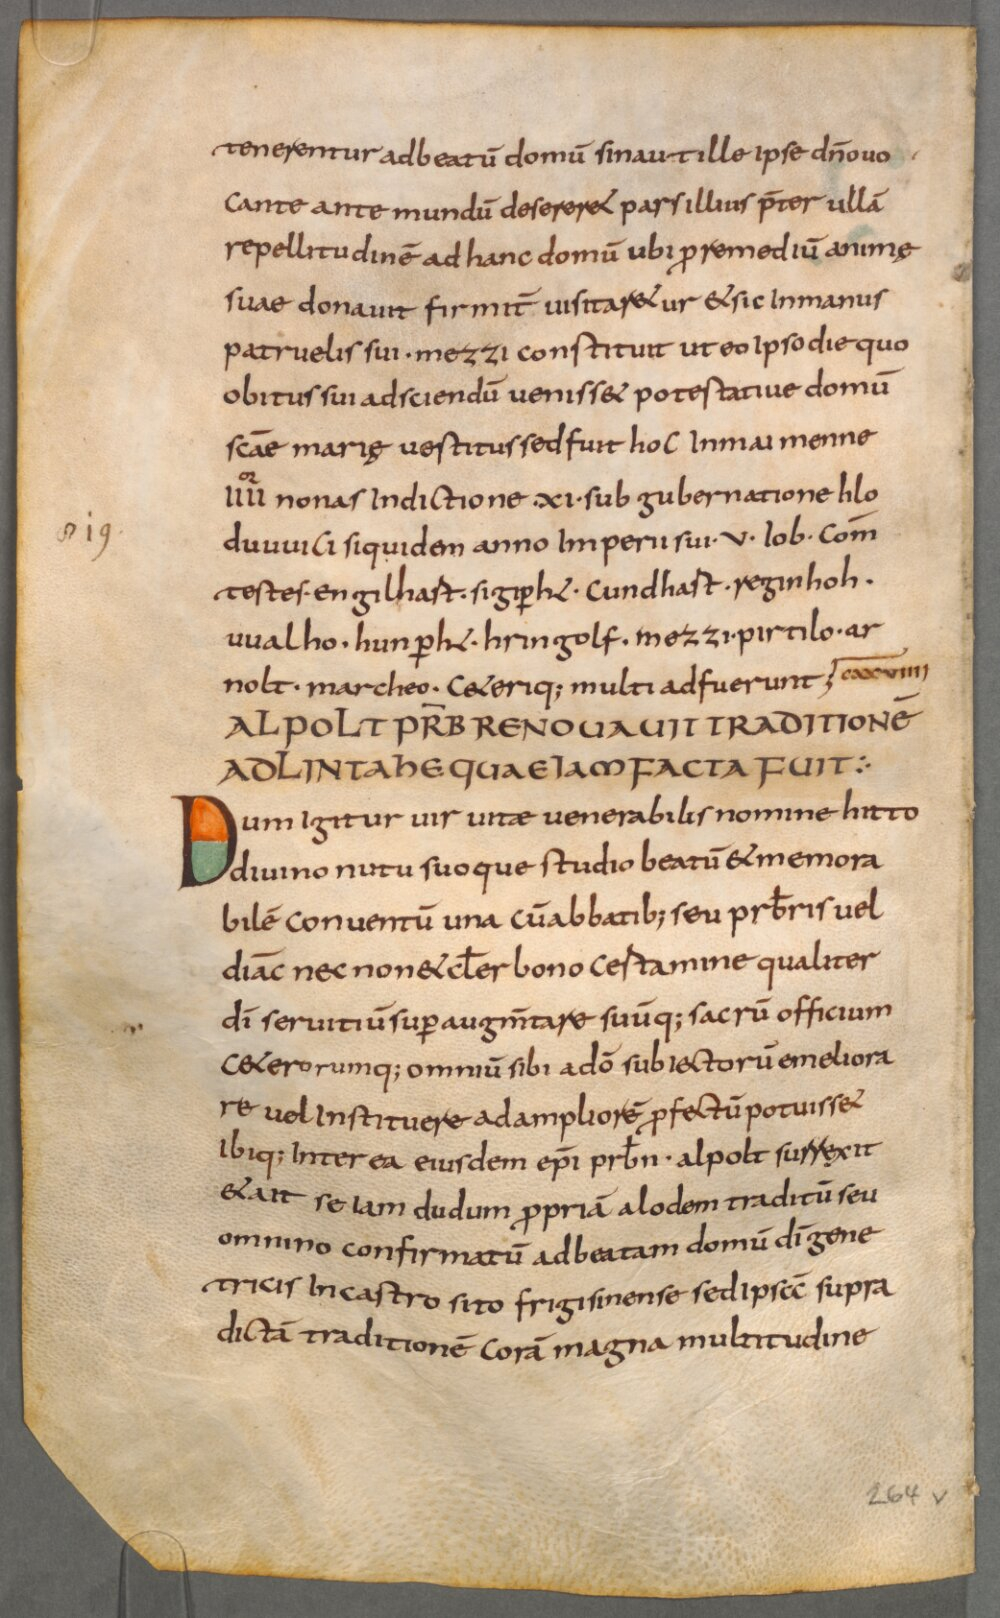 tenerentur ad beatū domū sin aut ille ipse dn̄o uo
cante ante mundū desereret pars illius p̄ter ullā
repellitudinē ad hanc domū ubi ꝓ remediū animę
suae donauit firmit̄ uisitaret᷑ur & sic In manus
patruelis sui · mezzi constituit ut eo Ipso die quo
obitus sui ad sciendū uenisset potestatiue domū
sc̄ae marię uestitus sed fuit hoc In mai menne
IIIIor nonas Indictione · xi · sub gubernatione hlo
duuuici siquidem anno Imperii sui · v · lob · Com̄
testes · engilhast · sigiꝑht · Cundhast · reginhoh ·
uualho · hunꝑht · hringolf · mezzi · pirtilo · ar
nolt · marcheo · Ceteriq; multi adfuerunt ; cxxviiii
ALPOLT PR̄B RENOUAUIT TRADITIONĒ
AD LINTAHE QUAE IAM FACTA FUIT :·
Dum Igitur uir uitæ uenerabilis nomine hitto
diuino nutu suoque studio beatū & memora
bilē Conuentū una cū abbatib; seu prb̄ris uel
diāc nec non & cl̄er bono Cestamine qualiter
dī seruitiū suꝑ augm̄tare suūq; sacrū officium
Ceterorumq; omniū sibi a dō subiectorū emeliora
re uel Instituere ad ampliorē ꝓfectū potuisset
Ibiq; Inter ea eiusdem ep̄i prb̄n · alpolt surrexit
& ait se Iam dudum ꝓpriā alodem traditū seu
omnino confirmatū ad beatam domū dī gene
tricis In castro sito frigisinense sed Ipse supra
dictā traditionē Corā magna multitudine
sig
264 v